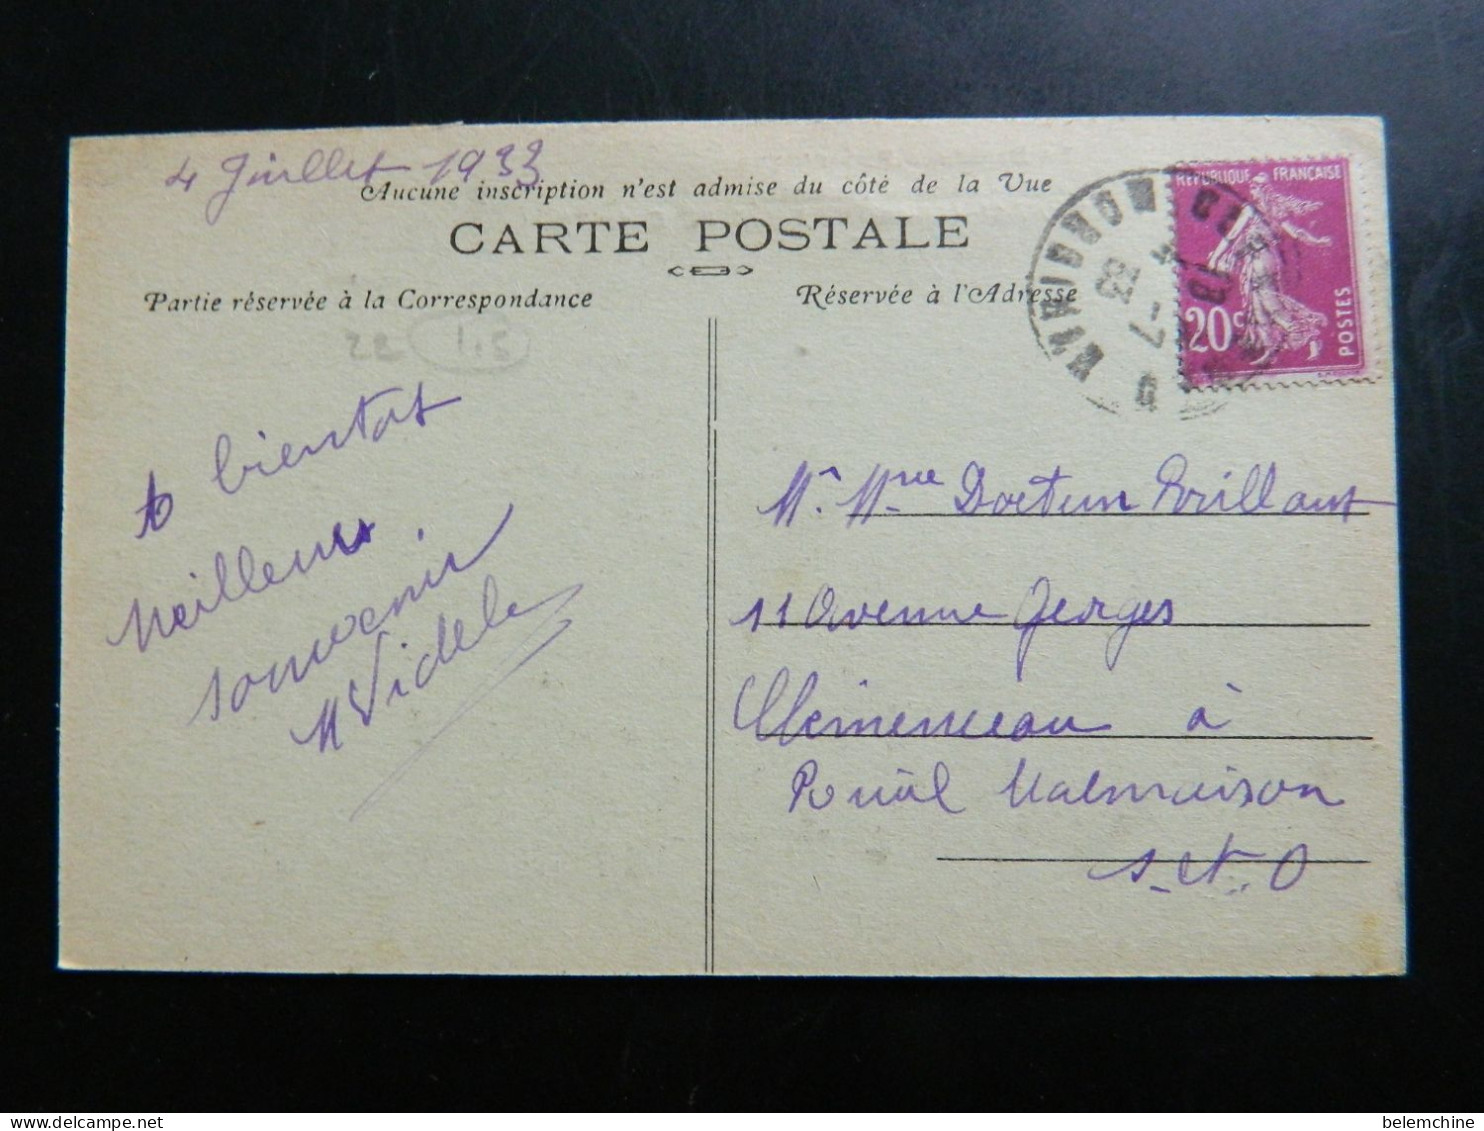 4 Juillet 1933
Aucune inscription n'est admise du côté de la Vue
CARTE POSTALE
Partie réservée à la Correspondance
Réservée à l'Adresse
REPUBLIQUE FRANÇAISE
20c
POSTES
4 -7 33
22 1.5
à bientot
Meilleurs
souvenir
M Videle
Mr. Mme Docteur Brillant
11 Avenue Georges
Clemenceau à
Rueil Malmaison
S.et.O
belemchine